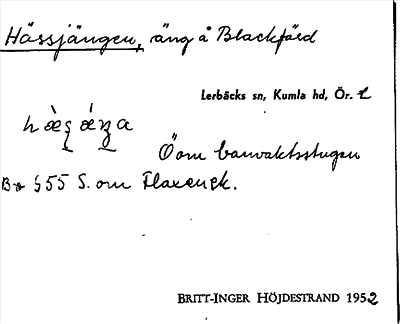 Hässjängen, äng å Blackfärd
Lerbäcks sn, Kumla hd, Ör. l
Öom banvaktsstugan
§55 S. om Flaxenek.
BRITT-INGER HÖJDESTRAND 1952